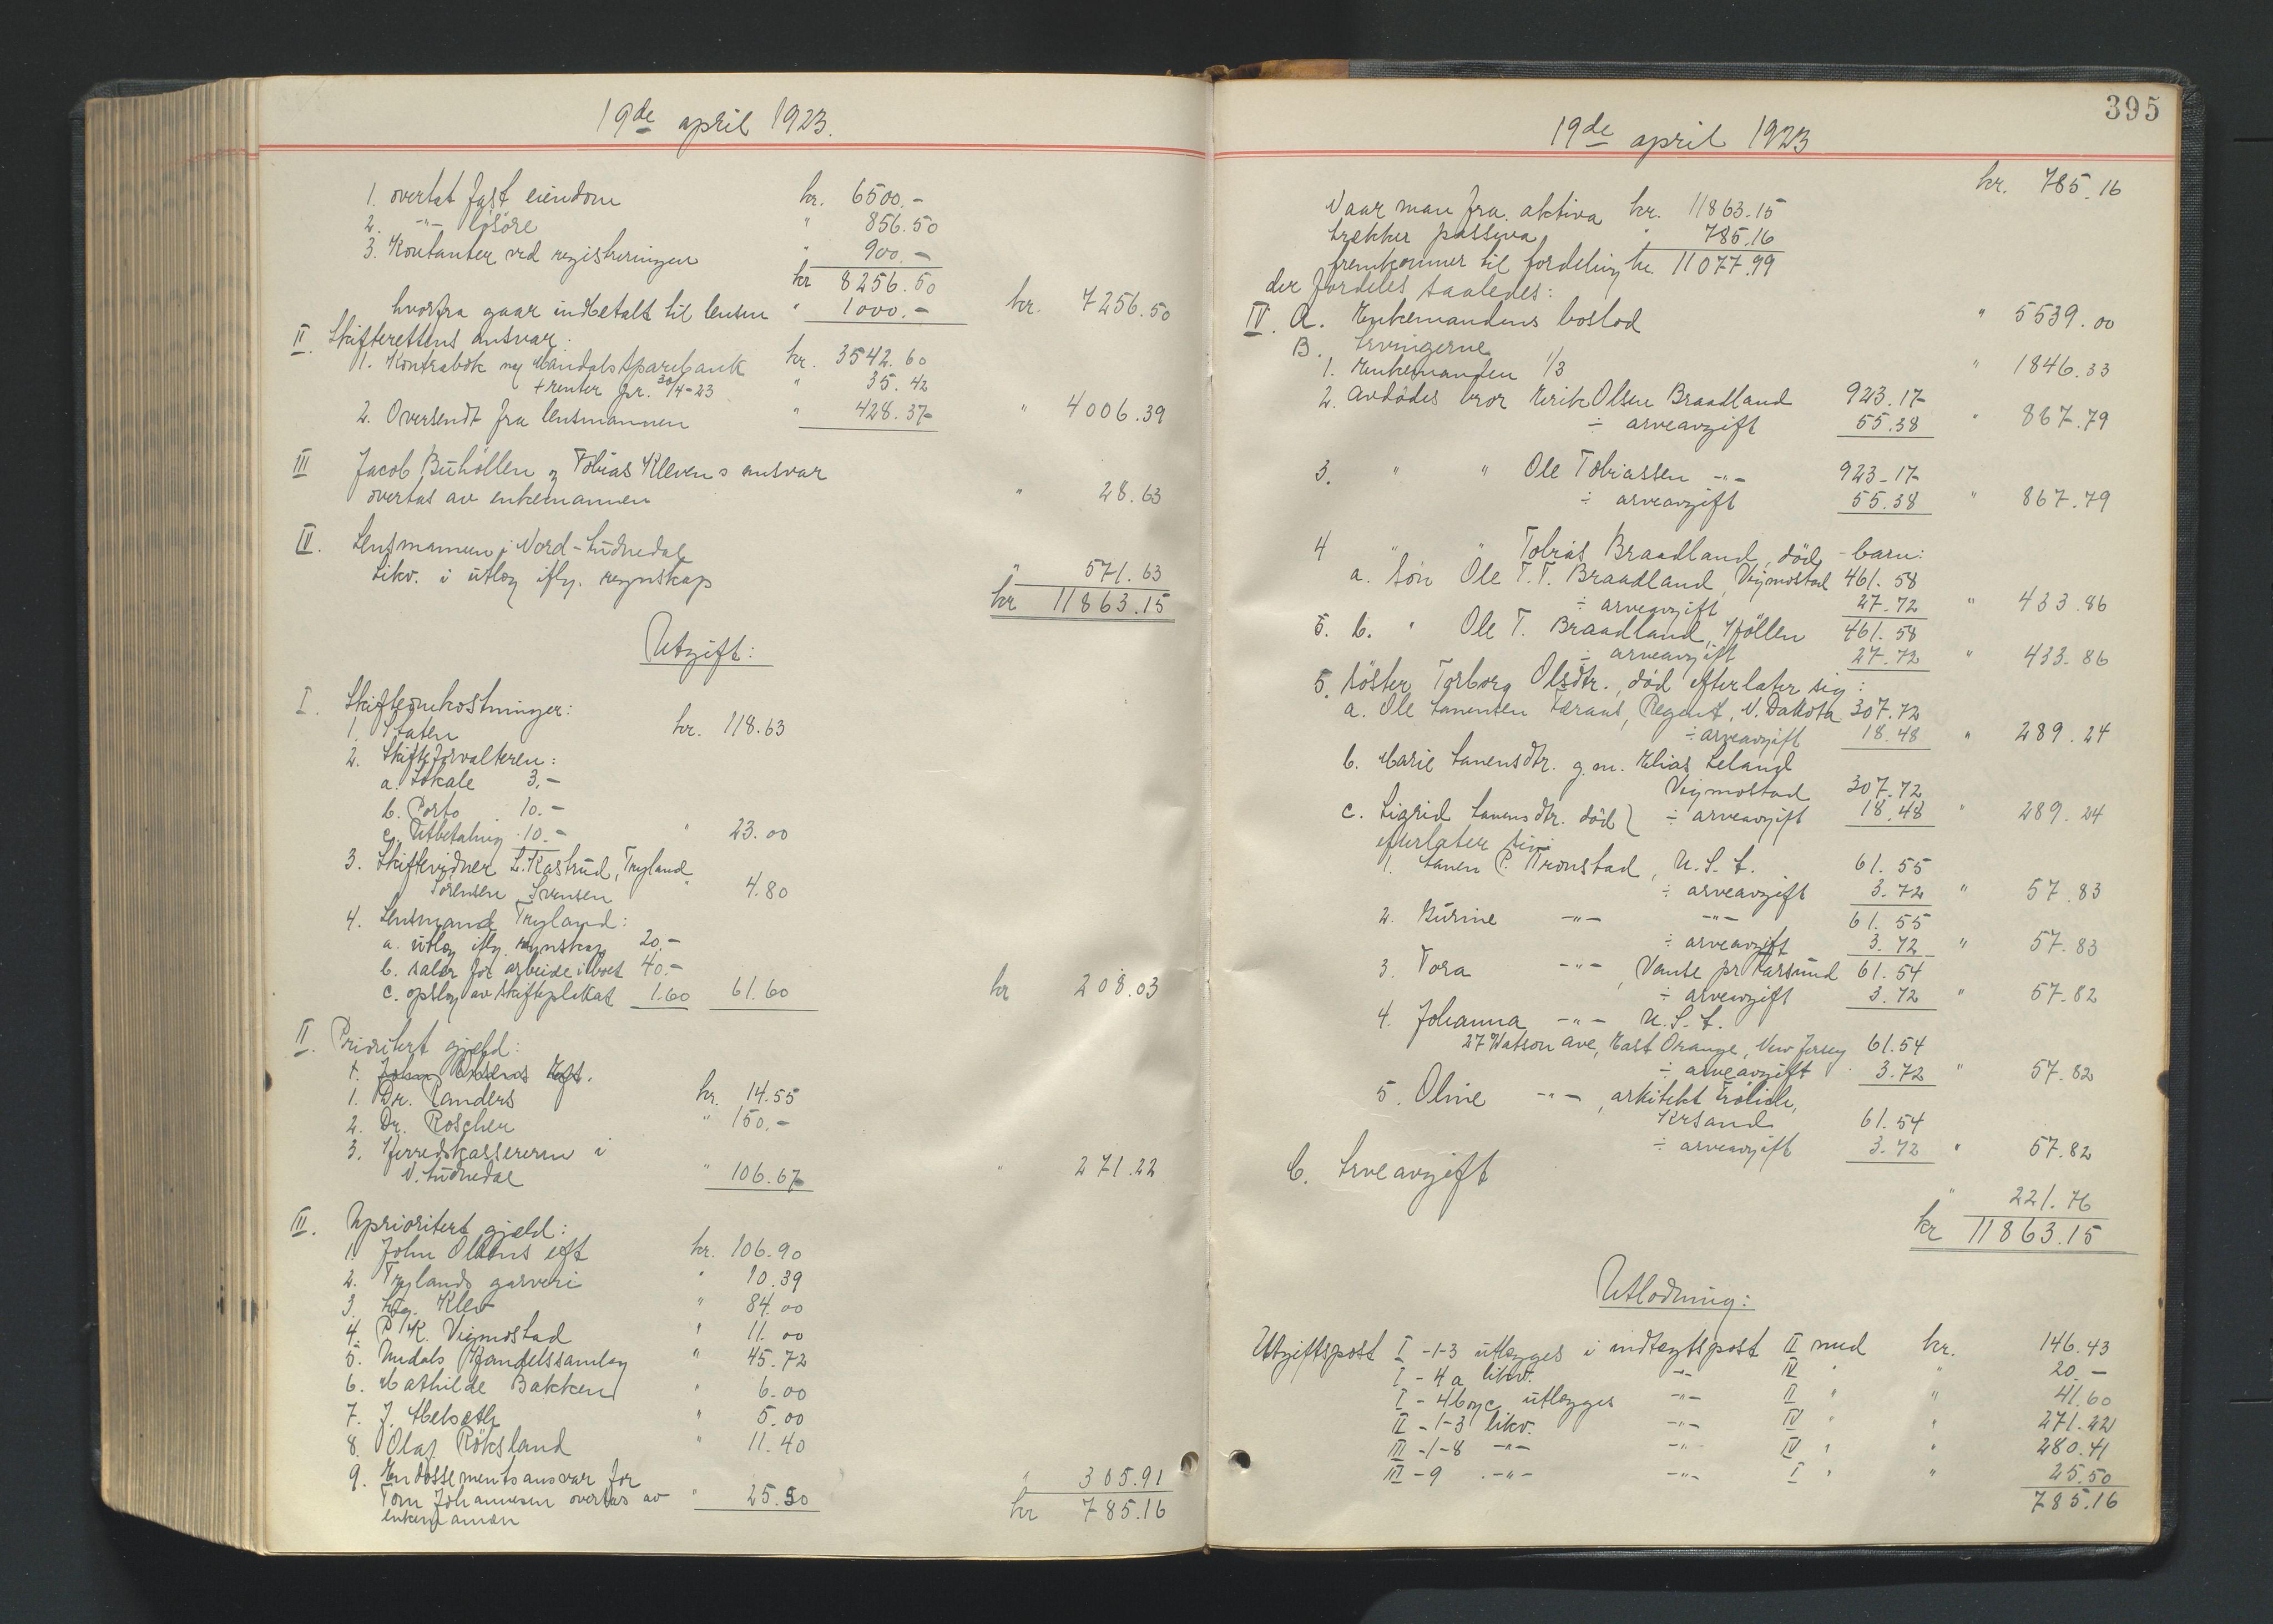 19de april 1923.
1. overtat fast eiendom kr. 6500.-
2. -"- løsøre " 856.50
3. Kontanter ved registreringen " 900.-
kr 8256.50
hvorfra gaar indbetalt til lensm " 1000.- kr. 7256.50
II Skifterettens ansvar:
1. Kontrabok med Mandals Sparebank kr. 3542.60
+ renter pr. 30/4-23 " 35.42
2. Oversendt fra lensmannen " 428.37 " 4006.39
III Jacob Buhøllen og Tobias Klevens ansvar
overtas av enkemannen " 28.63
IV. Lensmannen i Nord-Audnedal
Likv. i utlæg ifly. regnskap " 571.63
kr 11863.15
Utgift:
I. Skifteomkostninger:
1. Staten kr. 118.63
2. Skifteforvalteren:
a. Lokale 3.-
b. Porto 10.-
c. Utbetaling 10.- " 23.00
3. Skiftevidner L. Kastrud, Tryland
Sørensen, Svensen " 4.80
4. Lensmand Tryland:
a. utlæg ifly. regnskap 20.-
b. salær for arbeide i boet 40.-
c. opslag av skifteplakat 1.60 61.60 kr 208.03
II. Prioritert gjæld:
1. John Olsens Eft.
1. Dr. Randers kr. 14.55
2. Dr. Roscher " 150.-
3. Herredskassereren i
N. Audnedal " 106.67 " 271.22
III. Uprioritert gjæld:
1. John Olsens eft kr. 106.90
2. Trylands garveri " 10.39
3. Klev " 84.00
4. P. K. Vigmostad " 11.00
5. Audals Handelssamlag " 45.72
6. Mathilde Bakken " 6.00
7. J. " 5.00
8. Olaf Røksland " 11.40
9. Endossementsansvar for
Tom Johannesen overtas av " 25.50 " 305.91
enkemannen kr 785.16
395
19de april 1923
kr. 785.16
Naar man fra aktiva kr. 11863.15
trækker passiva " 785.16
fremkommer til fordeling kr. 11077.99
der fordeles saaledes:
IV. A. Enkemandens boslod " 5539.00
B. Arvingerne
1. Enkemanden 1/3 " 1846.33
2. avdødes bror Eerik Olsen Braadland 923.17
÷ arveavgift 55.38 " 867.79
3. " " Ole Tobiassen -"- 923.17
÷ arveavgift 55.38 " 867.79
4 " " Tobias Braadland, død - barn:
a. søn Ole T. T. Braadland, Vigmostad 461.58
÷ arveavgift 27.72 " 433.86
5. b. " Ole T. Braadland, Høllen 461.58
÷ arveavgift 27.72 " 433.86
5. søster Torborg Olsdtr., død efterlater sig:
a. Ole Lauensen Færaas, Regent, N. Dakota 307.72
÷ arveavgift 18.48 " 289.24
b. Marie Lauensdtr. g.m. Elias Leland
Vigmostad 307.72
c. Sigrid Lauensdtr. død ÷ arveavgift 18.48 " 289.24
efterlater sig:
1. Lauen P. Tronstad, U.S.A. 61.55
÷ arveavgift 3.72 " 57.83
2. Gurine -"- -"- 61.55
÷ arveavgift 3.72 " 57.83
3. Tora -"-, Vanse pr Farsund 61.54
÷ arveavgift 3.72 " 57.82
4. Johanna -"- U.S.A.
27 Watson ave, East Orange, New Jersey 61.54
÷ arveavgift 3.72 " 57.82
5. Oline -"-, arkitekt Frølich,
Krsand 61.54
÷ arveavgift 3.72 " 57.82
C. Arveavgift
" 221.76
kr 11863.15
Utlodning:
Utgiftspost I -1-3 utlægges i indtægtspost II med kr. 146.43
I - 4a likv. -"- IV " " 20.-
I - 4b og c utlægges -"- II " " 41.60
II - 1-3 likv. -"- IV " " 271.22
III -1-8 -"- -"- IV " " 280.41
III - 9 -"- -"- I " " 25.50
785.16